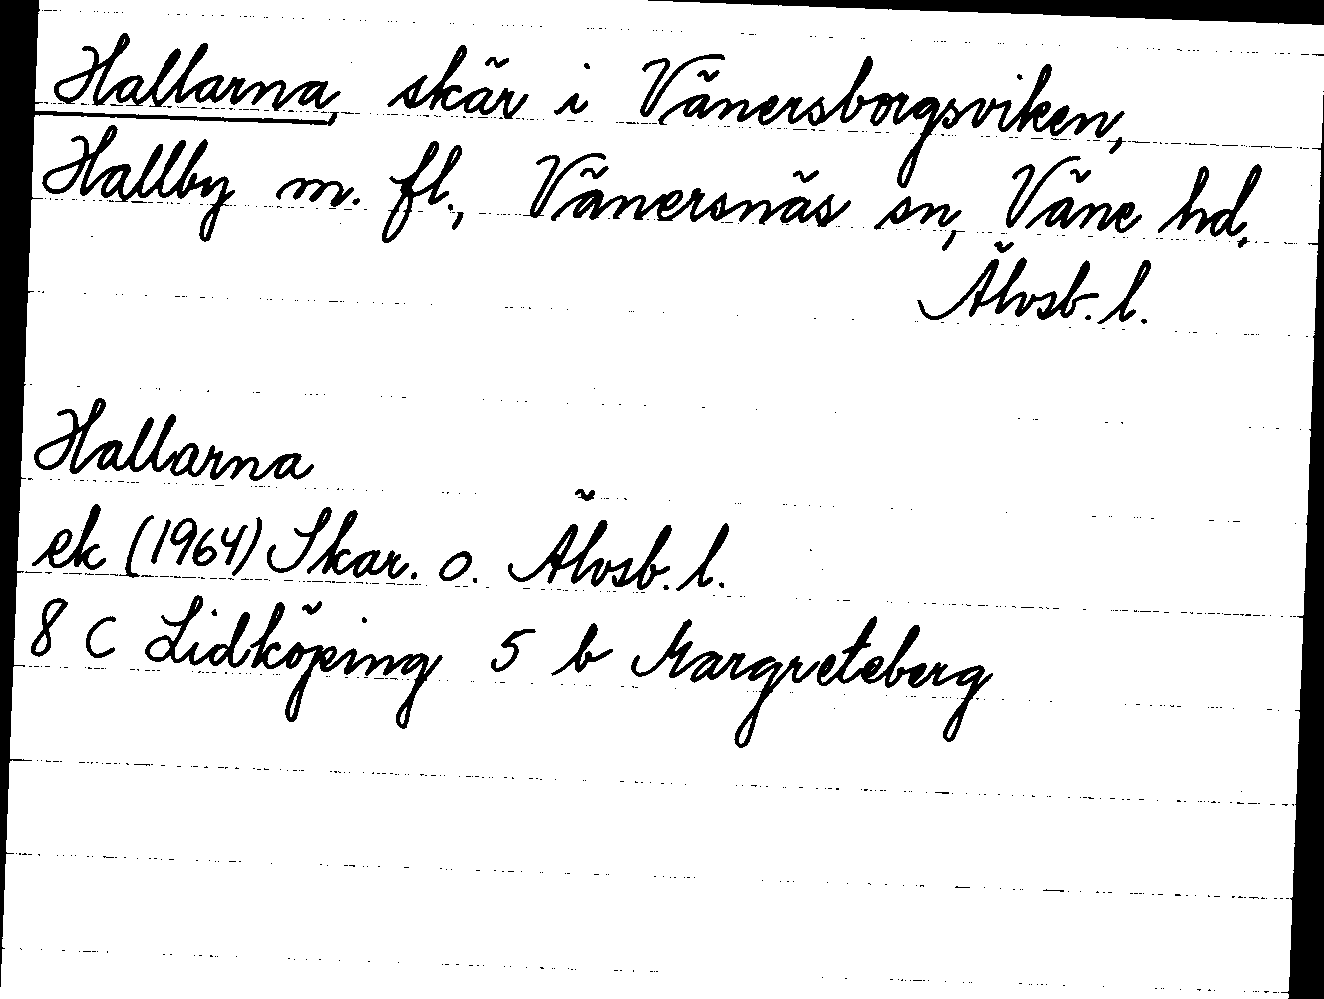 Hallarna, skär i Vänersborgsviken,
Hallby m. fl., Vänersnäs sn, Väne hd.
Älvsb. l.
Hallarna
ek (1964) Skar. o. Älvsb. l.
8 C Lidköping 5 b Margreteberg